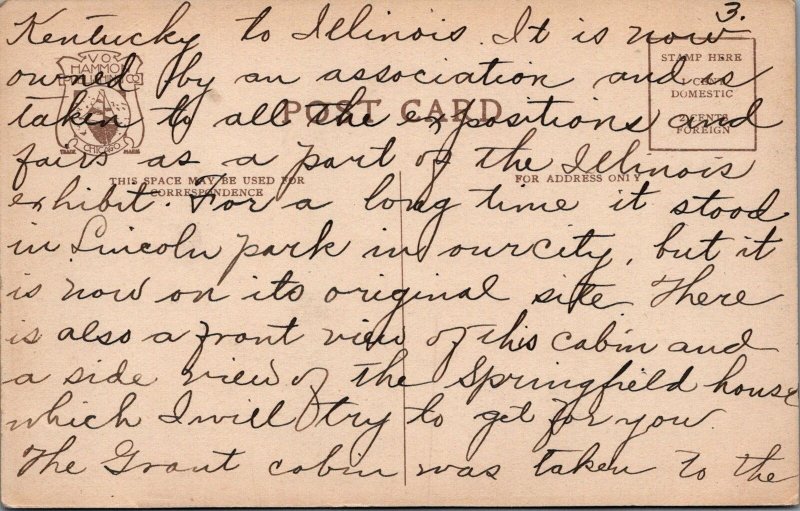 3.
Kentucky to Illinois. It is now
owned by an association and is
taken to all the expositions and
fairs as a part of the Illinois
exhibit. For a long time it stood
in Lincoln park in our city, but it
is now on its original site. There
is also a front view of this cabin and
a side view of the Springfield house
which I will try to get for you.
The Grant cabin was taken to the
V.O.
HAMMON
PUBLISHING CO
CHICAGO
TRADE MARK
POST CARD
THIS SPACE MAY BE USED FOR
CORRESPONDENCE
FOR ADDRESS ONLY
STAMP HERE
1 CENT
DOMESTIC
2 CENTS
FOREIGN